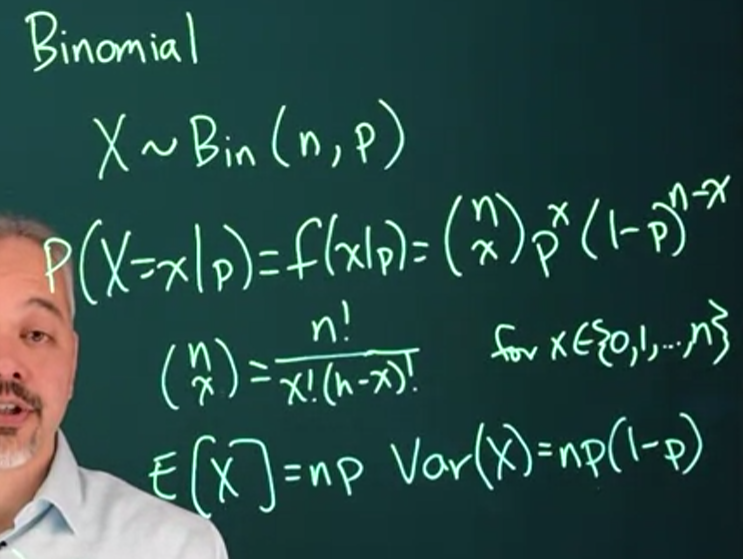 Binomial
X ~ Bin(n, p)
P(X=x|p) = f(x|p) = (n x) p^x (1-p)^{n-x}
(n x) = n! / x!(n-x)!    for x∈{0,1,...,n}
E[X] = np  Var(X) = np(1-p)